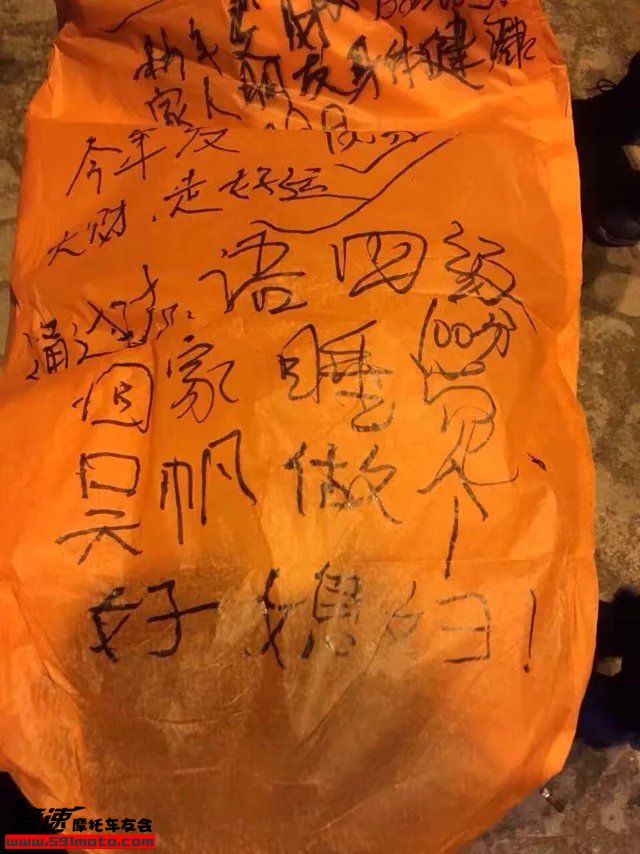 新年
家人朋友身体健康
今年发
大财,走好运
通过 语四级
100分
回家睡觉
吴帆做个
好媳妇!
高速摩托车友会
www.591moto.com